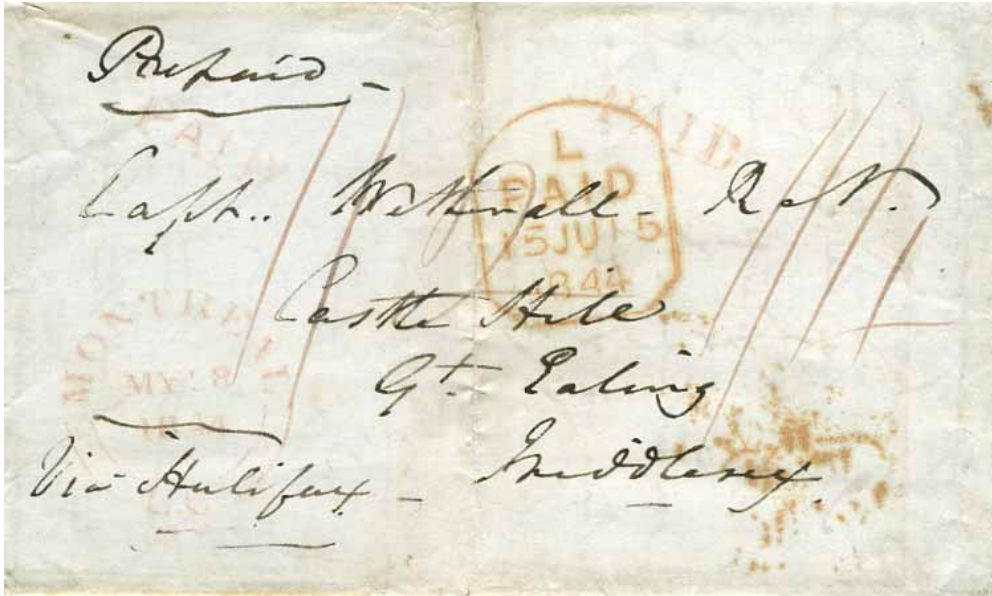 Prepaid -
PAID
PAID
L
PAID
15 JU 15
1844
Capt.. Wethrall - R.N.
Castle Hill
Gt. Ealing
Middlesex.
MONTREAL
MY 28
Via Halifax -